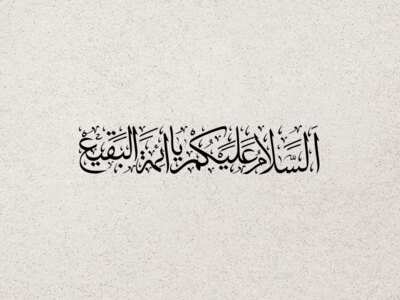 اَلسَّلامُ عَلَيكُم يا ائمةَ البَقيعْ